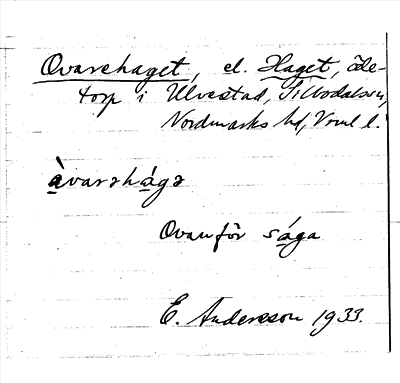 Ovarehaget, el. Haget, öde-
torp i Ulvestad, Sillbodals sn,
Nordmarks hd, Vrml l.
àvarəhágə
Ovanför sága
E. Andersson 1933.